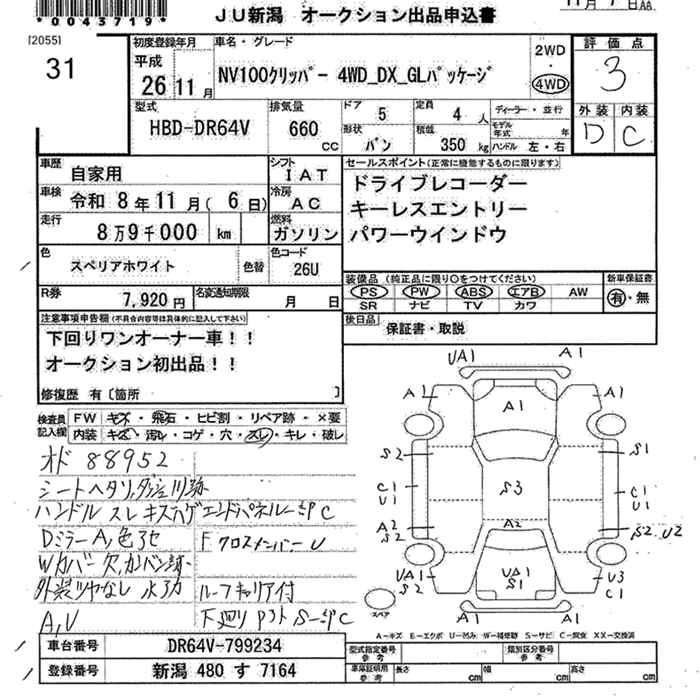 *0043719*
JU新潟 オークション出品申込書
11月 7日
[2055]
31
初度登録年月
平成
26年 11月
車名・グレード
NV100クリッパー 4WD_DX_GLパッケージ
2WD
・
4WD
評価点
3
型式
HBD-DR64V
排気量
660 cc
ドア 5
定員 4人
ディーラー・並行
形状 バン
積載 350 kg
モデル年式 年
ハンドル 左・右
外装 内装
D C
車歴 自家用
シフト IAT
車検 令和 8年 11月( 6日)
冷房 AC
走行 8万9千000 km
燃料 ガソリン
色 スペリアホワイト
色替
色コード 26U
R券 7,920円
名変通知期限 月 日
セールスポイント(正常に機能するものに限ります)
ドライブレコーダー
キーレスエントリー
パワーウインドウ
装備品(純正品に限り○をつけてください)
PS PW ABS エアB AW
SR ナビ TV カワ
新車保証書
有・無
後日品 保証書・取説
注意事項申告欄(不具合内容等は具体的に記入して下さい)
下回りワンオーナー車!!
オークション初出品!!
修復歴 有〔箇所 〕
検査員記入欄
FW キズ・飛石・ヒビ割・リペア跡・×要
内装 キズ・汚レ・コゲ・穴・スレ・キレ・破レ
オド 88952
シートヘタリ,
ハンドル スレ キズハゲ エンドパネル C
Dミラー A,色
Fクロスメンバー U
Wカバー欠,
外装ツヤなし 水アカ
ルーフキャリア付
A,U
下廻り S C
UA1 A1
A1 A1 A1
S2 S1
C1 U1 S3 C1 U1
A2 S2 A2 S2 U2
UA1 S2 UA1 S1 U3 C1
A1 A1
スペア
A-キズ E-エクボ U-凹み W-補修跡 S-サビ C-腐食 XX-交換済
車台番号 DR64V-799234
登録番号 新潟 480 す 7164
型式指定番号 参考
類別区分番号 参考
車庫証明用 参考
長さ cm
幅 cm
高さ cm